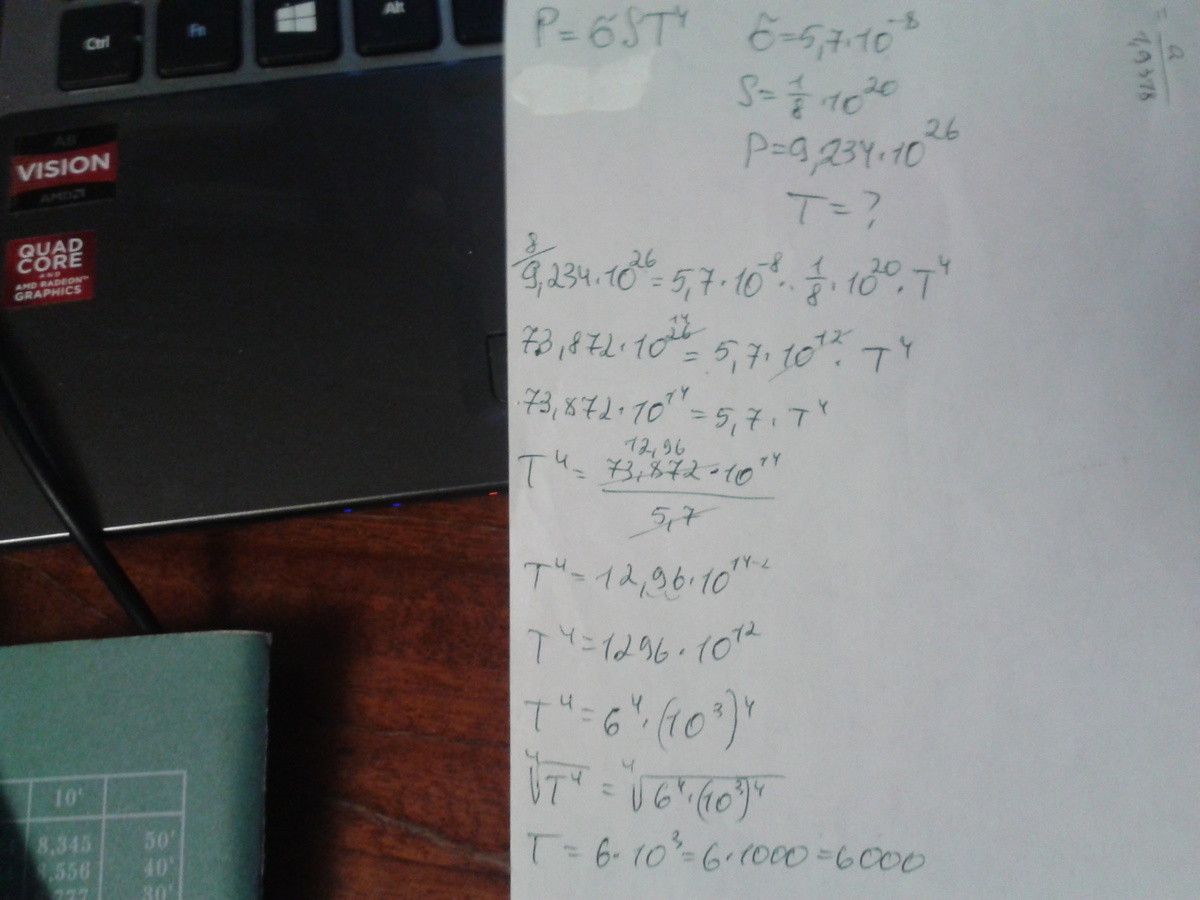 Ctrl
Fn
Alt
VISION
AMD
QUAD
CORE
AND
AMD RADEON™
GRAPHICS
P=σST⁴
σ=5,7·10⁻⁸
S=1/8·10²⁰
P=9,234·10²⁶
T=?
8/
9,234·10²⁶=5,7·10⁻⁸·1/8·10²⁰·T⁴
14
73,872·10²⁶=5,7·10¹²·T⁴
73,872·10¹⁴=5,7·T⁴
12,96
T⁴=73,872·10¹⁴/5,7
T⁴=12,96·10¹⁴⁻²
T⁴=1296·10¹²
T⁴=6⁴·(10³)⁴
⁴√T⁴=⁴√6⁴·(10³)⁴
T=6·10³=6·1000=6000
10'
8,345 50'
,556 40'
,777 30'